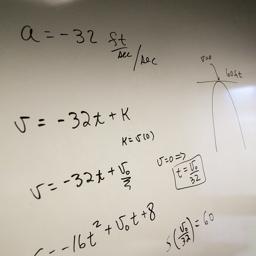 a = -32 ft/sec/sec
v=0
60ft
v = -32t + K
K = v(0)
v=0 =>
t = v₀/32
v = -32t + v₀
s = -16t² + v₀t + 8
s(v₀/32) = 60